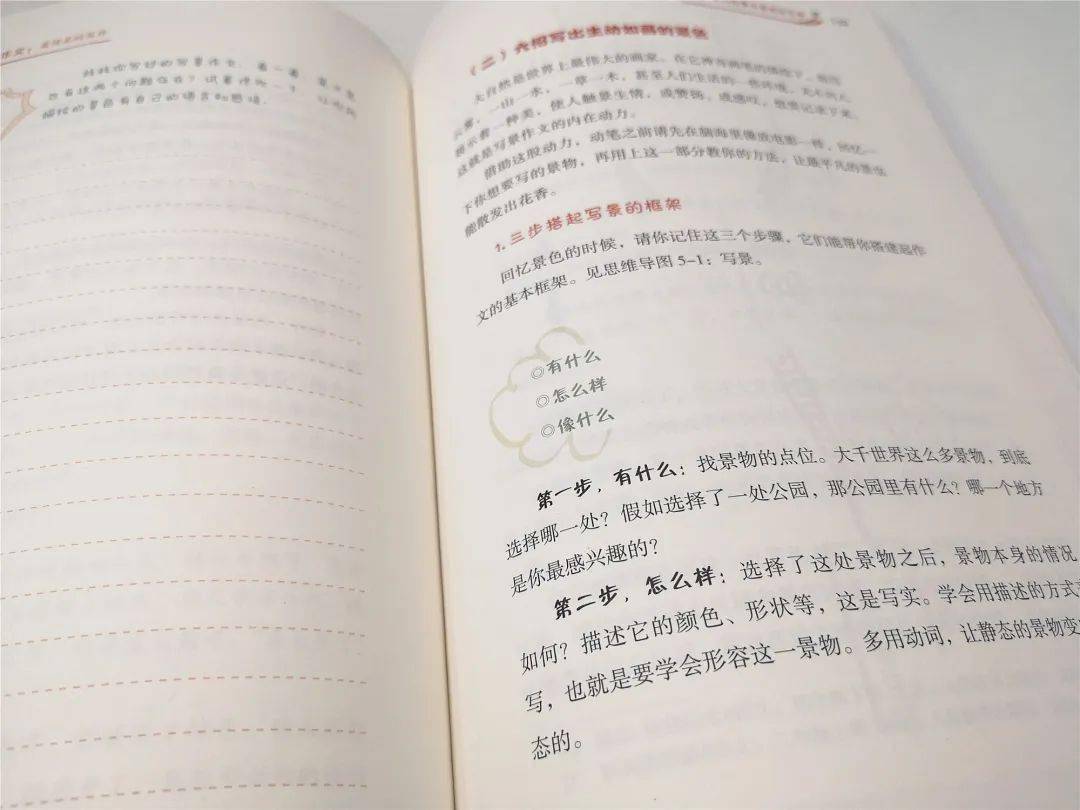 找找你写好的写景作文，看一看，是不是
也有这两个问题存在？试着修改一下，让你所
描绘的景色有自己的语言和感情。
（二）六招写出生动如画的景色
大自然是世界上最伟大的画家。在它神奇画笔的描绘下，
云雾，一山一水，一草一木，甚至人们生活的一些环境，无不向人
展示着一种美，使人触景生情，或赞扬，或感叹，想要记录下来。
这就是写景作文的内在动力。
借助这股动力，动笔之前请先在脑海里像放电影一样，回忆一
下你想要写的景物，再用上这一部分教你的方法，让最平凡的景也
能散发出花香。
1. 三步搭起写景的框架
回忆景色的时候，请你记住这三个步骤，它们能帮你搭建起作
文的基本框架。见思维导图 5-1：写景。
◎有什么
◎怎么样
◎像什么
第一步，有什么：找景物的点位。大千世界这么多景物，到底
选择哪一处？假如选择了一处公园，那公园里有什么？哪一个地方
是你最感兴趣的？
第二步，怎么样：选择了这处景物之后，景物本身的情况
如何？描述它的颜色、形状等，这是写实。学会用描述的方式
写，也就是要学会形容这一景物。多用动词，让静态的景物变
态的。